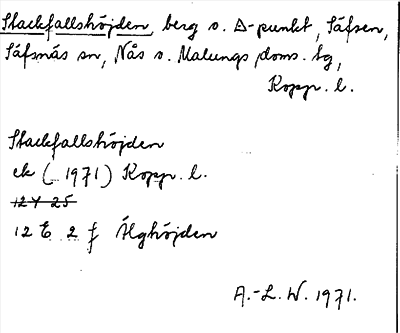 Stackfallshöjden, berg o. Δ-punkt, Säfsen,
Säfsnäs sn, Nås o. Malungs doms. tg,
Kopp. l.
Stackfallshöjden
ek (1971) Kopp. l.
12 Y 25
12 E 2 f Älghöjden
A.-L. W. 1971.